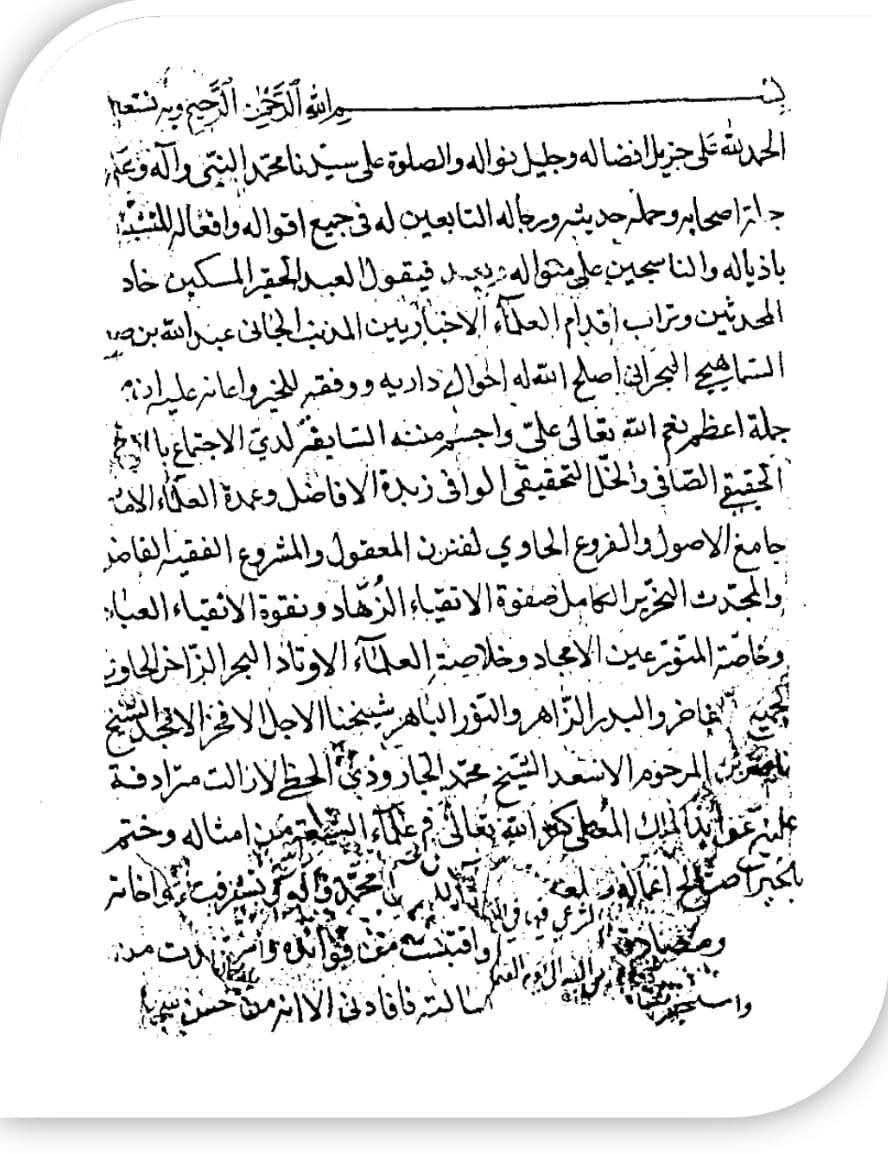 بسم الله الرحمن الرحيم وبه نستعين
الحمد لله على جزيل افضاله وجليل نواله والصلوة على سيدنا محمد النبي وآله وعلى
جلة اصحابه وحملة حديثه ورجاله التابعين له في جميع اقواله وافعاله
باذياله والناسجين على منواله وبعد فيقول العبد الحقير المسكين خادم
المحدثين وتراب اقدام العلماء الاخباريين المذنب الجاني عبد الله بن صالح
السماهيجي البحراني اصلح الله له احوال داريه ووفقه للخير واعانه عليه ان من
جملة اعظم نعم الله تعالى علي واجسم مننه السابقة لدي الاجتماع بالاخ
الحقيقي الصافي والخل التحقيقي الوافي زبدة الافاضل وعمدة العلماء الاماثل
جامع الاصول والفروع الحاوي لفنون المعقول والمشروع الفقيه الفاضل
والمحدث النحرير الكامل صفوة الاتقياء الزهاد ونقوة الانقياء العباد
وخاصة المتورعين الامجاد وخلاصة العلماء الاوتاد البحر الزاخر الحاوي
لجميع المفاخر والبدر الزاهر والنور الباهر شيخنا الاجل الافخر الامجد الشيخ
ناصر بن المرحوم الاسعد الشيخ محمد الجارودي الخطي لا زالت مترادفة
عليه عوايد الملك المعطي كثر الله تعالى في علماء الشيعة من امثاله وختم
بالخير صالح اعماله محمد وآله تشرفت واخاته
ومصادقته واقتبست من فوائده
سالته فافادني الا انه من حسن